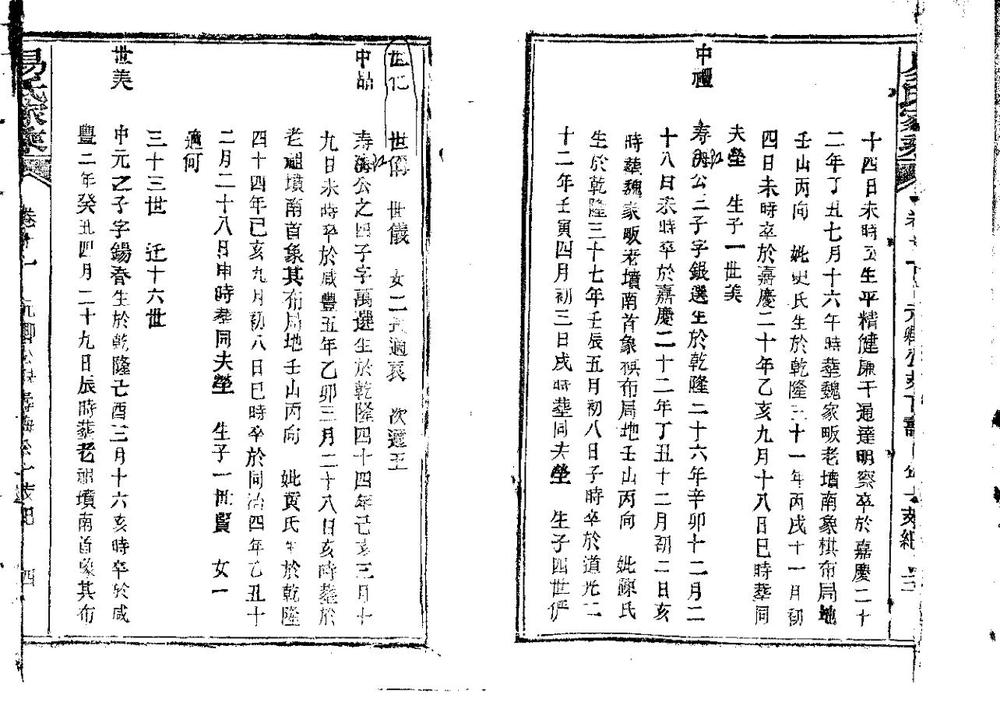 十四日未時公生平精健廉干通達明察卒於嘉慶二十
二年丁丑七月十六午時葬魏家畈老墳南象棋布局地
壬山丙向　妣史氏生於乾隆三十一年丙戌十一月初
四日未時卒於嘉慶二十年乙亥九月十八日巳時葬同
夫塋　生子一世美
中禮　寿海公三子字銀選生於乾隆二十六年辛卯十二月二
十八日未時卒於嘉慶二十二年丁丑十二月初二日亥
時葬魏家畈老墳南首象棋布局地壬山丙向　妣陳氏
生於乾隆三十七年壬辰五月初八日子時卒於道光二
十二年壬寅四月初三日戌時葬同夫塋　生子四世儼
世化　世儒　世儀　女二長適袁　次適王
中品　寿海公之四子字萬選生於乾隆四十四年己亥三月十
九日未時卒於咸豐五年乙卯三月二十八日亥時葬於
老祖墳南首象其布局地壬山丙向　妣黃氏生於乾隆
四十四年己亥九月初八日巳時卒於同治四年乙丑十
二月二十八日申時葬同夫塋　生子一世賢　女一
適何
三十三世　迁十六世
世美　中元之子字錫春生於乾隆己酉三月十六亥時卒於咸
豐二年癸丑四月二十九日辰時葬老祖墳南首象其布
易氏家乘　卷十一　四